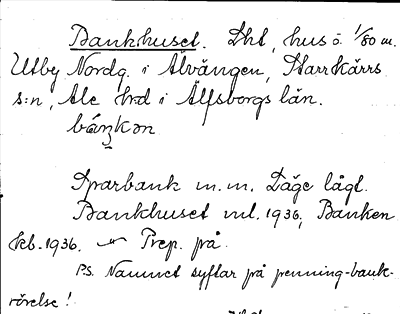 Bankhuset. Lht, hus ö. 1/80 m.
Utby Nordg. i Alvängen, Starrkärrs
s:n, Ale hrd i Älfsborgs län.
báŋkən
Sparbank m.m. Läge lågt.
Bankhuset ml. 1936, Banken
kb. 1936. Prep. på.
PS. Namnet syftar på penning-bank-
rörelse!